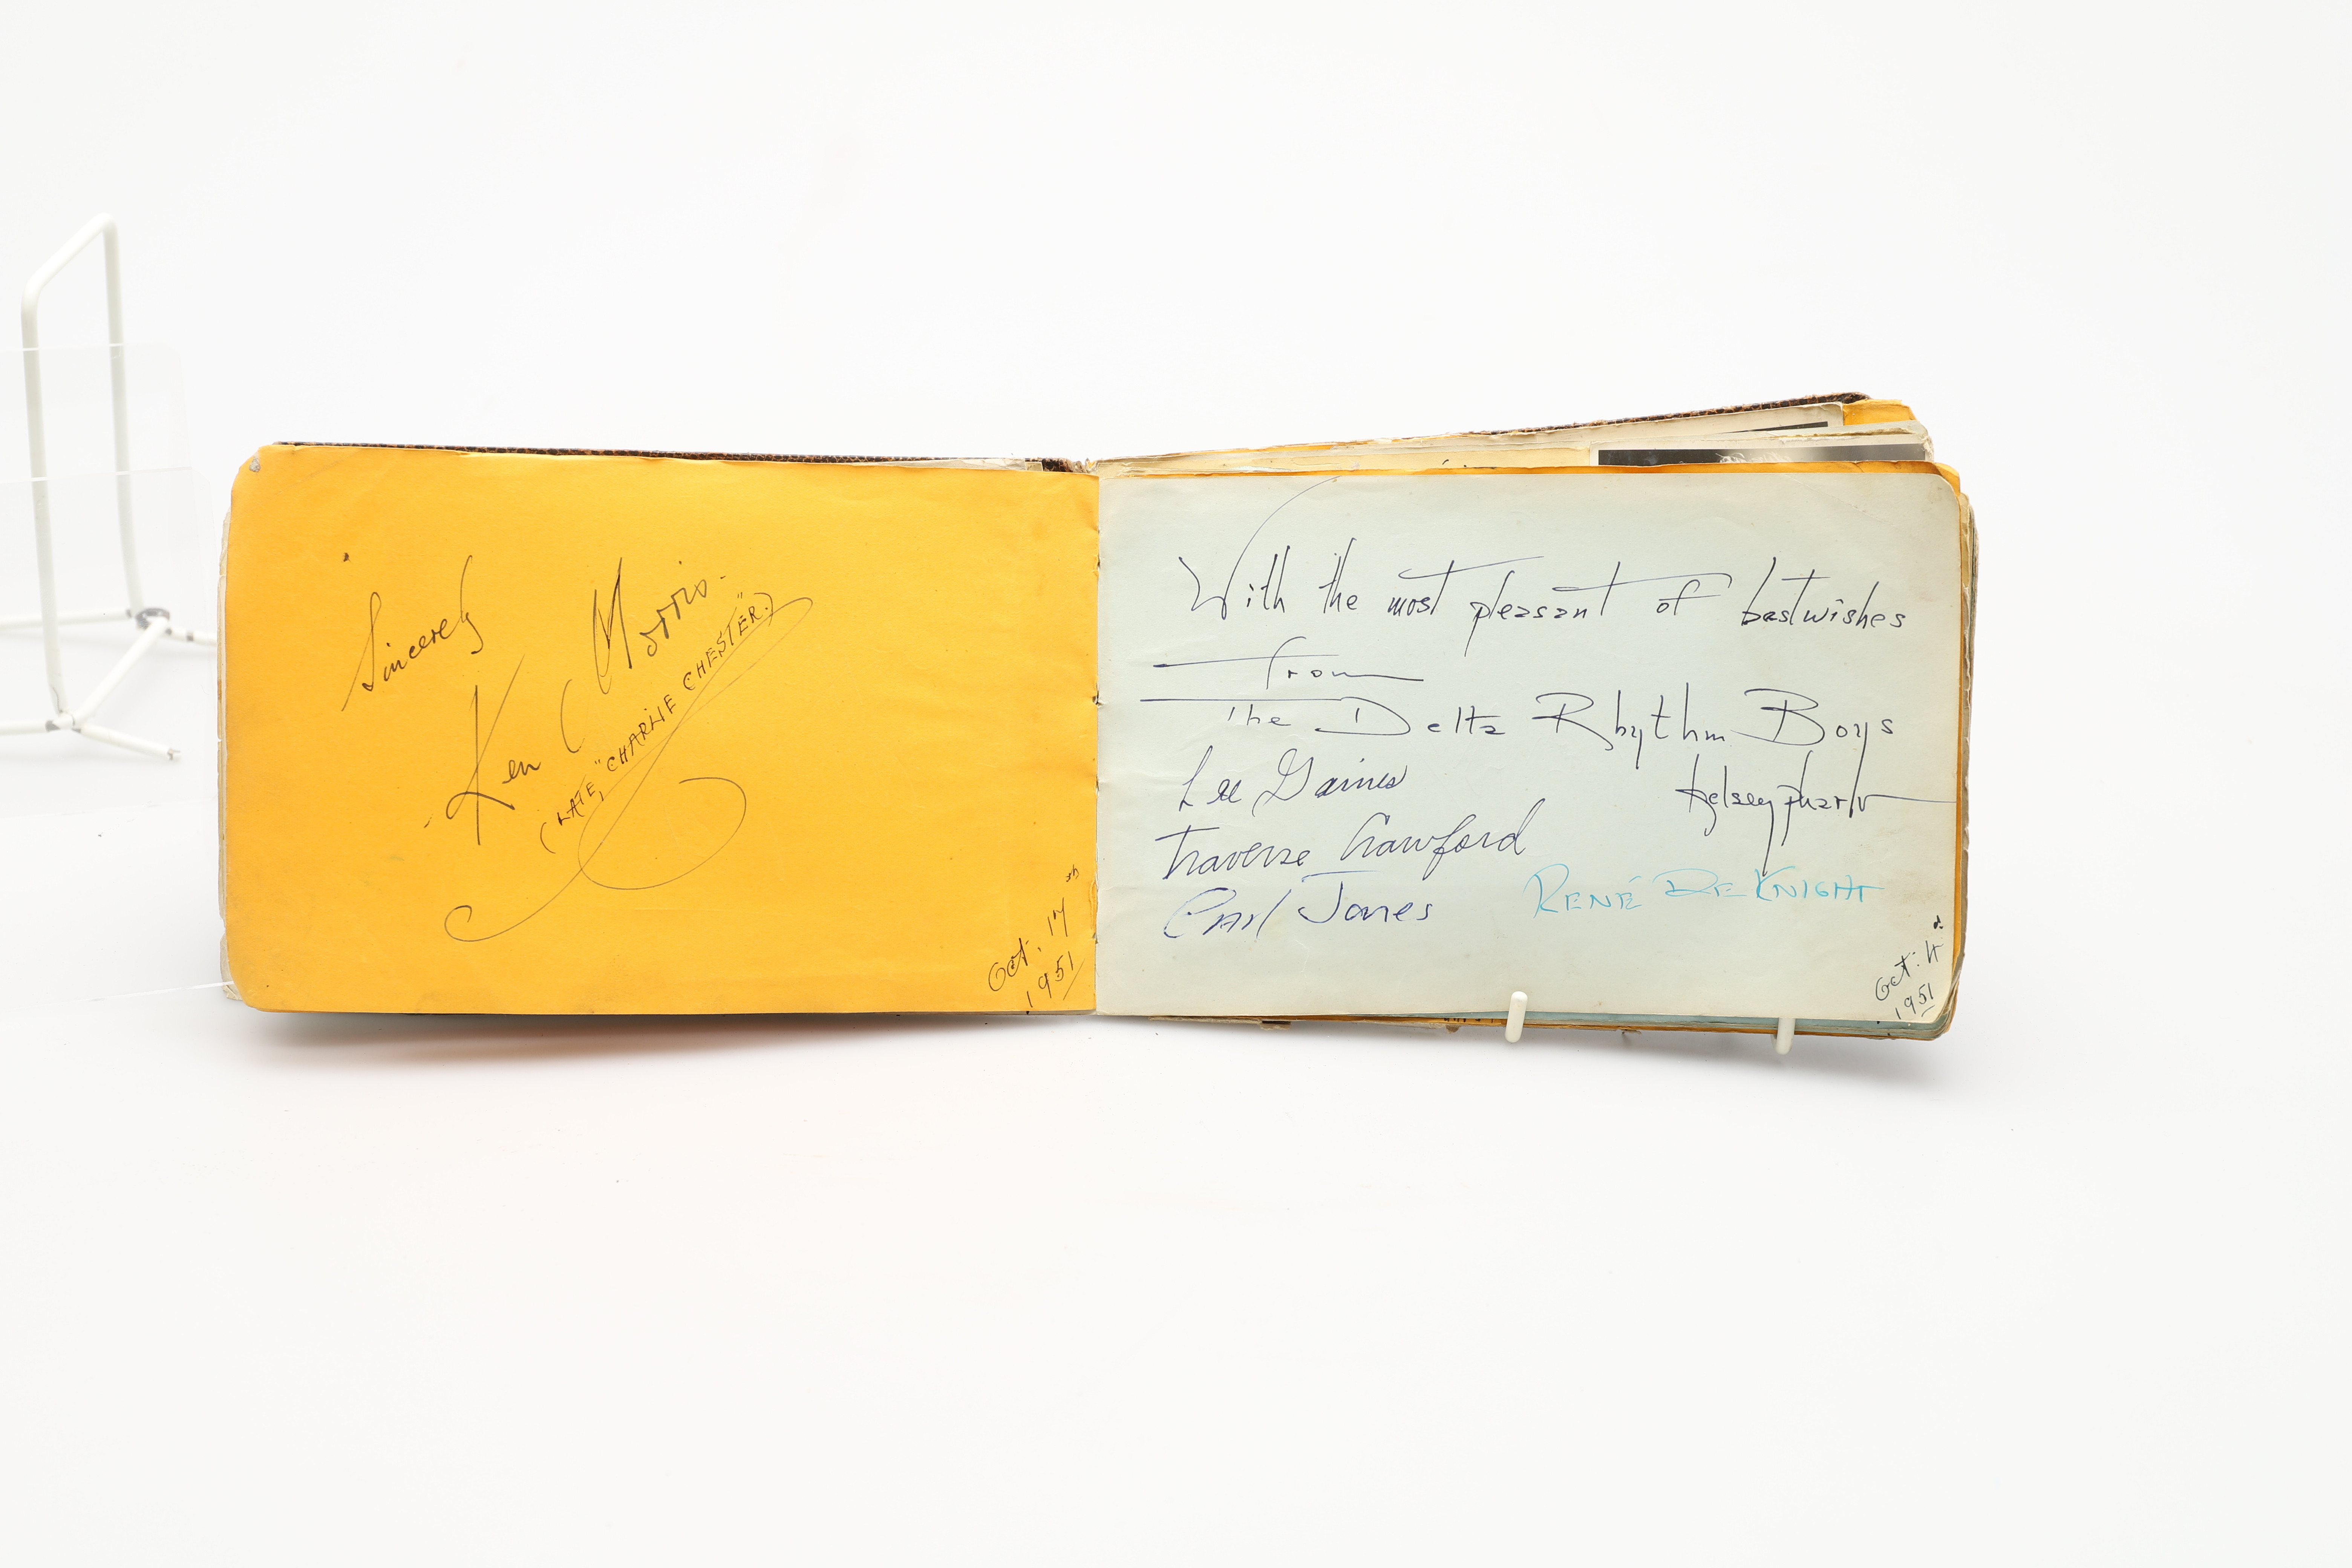 Sincerely
Ken Morris.
(LATE, "CHARLIE CHESTER".)
Oct. 17th
1951
With the most pleasant of bestwishes
from
The Delta Rhythm Boys
Lee Gaines
Kelsey Pharr
Traverse Crawford
RENÉ DE KNIGHT
Carl Jones
Oct: 4
1951